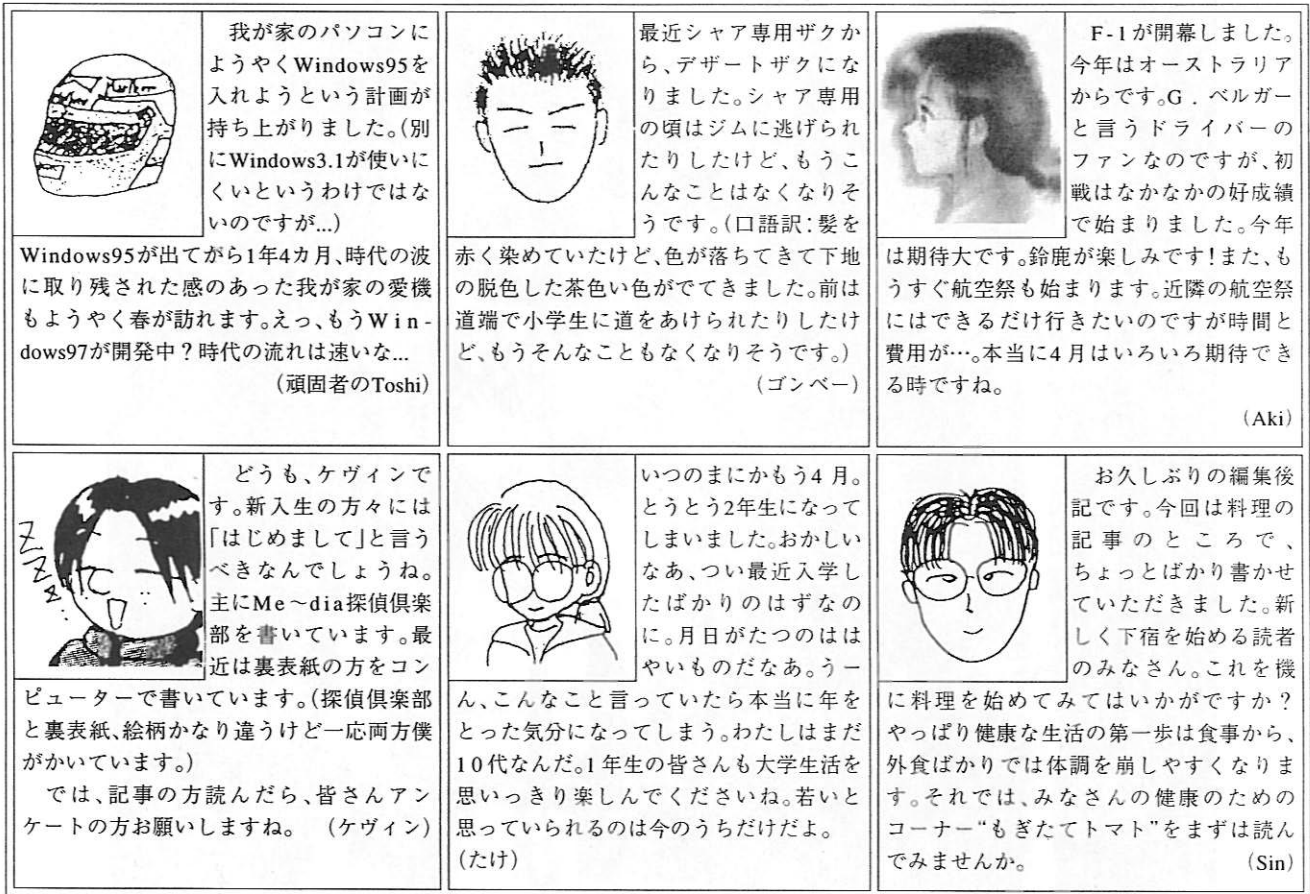 我が家のパソコンに
ようやくWindows95を
入れようという計画が
持ち上がりました。(別
にWindows3.1が使いに
くいというわけではな
いのですが...)
Windows95が出てがら1年4カ月、時代の波
に取り残された感のあった我が家の愛機
もようやく春が訪れます。えっ、もうWin-
dows97が開発中？時代の流れは速いな...
(頑固者のToshi)
最近シャア専用ザクか
ら、デザートザクにな
りました。シャア専用
の頃はジムに逃げられ
たりしたけど、もうこ
んなことはなくなりそ
うです。(口語訳:髪を
赤く染めていたけど、色が落ちてきて下地
の脱色した茶色い色がでてきました。前は
道端で小学生に道をあけられたりしたけ
ど、もうそんなこともなくなりそうです。)
(ゴンベー)
F-1が開幕しました。
今年はオーストラリア
からです。G．ベルガー
と言うドライバーの
ファンなのですが、初
戦はなかなかの好成績
で始まりました。今年
は期待大です。鈴鹿が楽しみです!また、も
うすぐ航空祭も始まります。近隣の航空祭
にはできるだけ行きたいのですが時間と
費用が…。本当に4月はいろいろ期待でき
る時ですね。
(Aki)
Z
Z
Z
どうも、ケヴィンで
す。新入生の方々には
「はじめまして」と言う
べきなんでしょうね。
主にMe～dia探偵倶楽
部を書いています。最
近は裏表紙の方をコン
ピューターで書いています。(探偵倶楽部
と裏表紙、絵柄かなり違うけど一応両方僕
がかいています。)
では、記事の方読んだら、皆さんアン
ケートの方お願いしますね。 (ケヴィン)
いつのまにかもう4月。
とうとう2年生になって
しまいました。おかしい
なあ、つい最近入学し
たばかりのはずなの
に。月日がたつのはは
やいものだなあ。うー
ん、こんなこと言っていたら本当に年を
とった気分になってしまう。わたしはまだ
10代なんだ。1年生の皆さんも大学生活を
思いっきり楽しんでくださいね。若いと
思っていられるのは今のうちだけだよ。
(たけ)
お久しぶりの編集後
記です。今回は料理の
記事のところで、
ちょっとばかり書かせ
ていただきました。新
しく下宿を始める読者
のみなさん。これを機
に料理を始めてみてはいかがですか？
やっぱり健康な生活の第一歩は食事から、
外食ばかりでは体調を崩しやすくなりま
す。それでは、みなさんの健康のための
コーナー“もぎたてトマト”をまずは読ん
でみませんか。 (Sin)